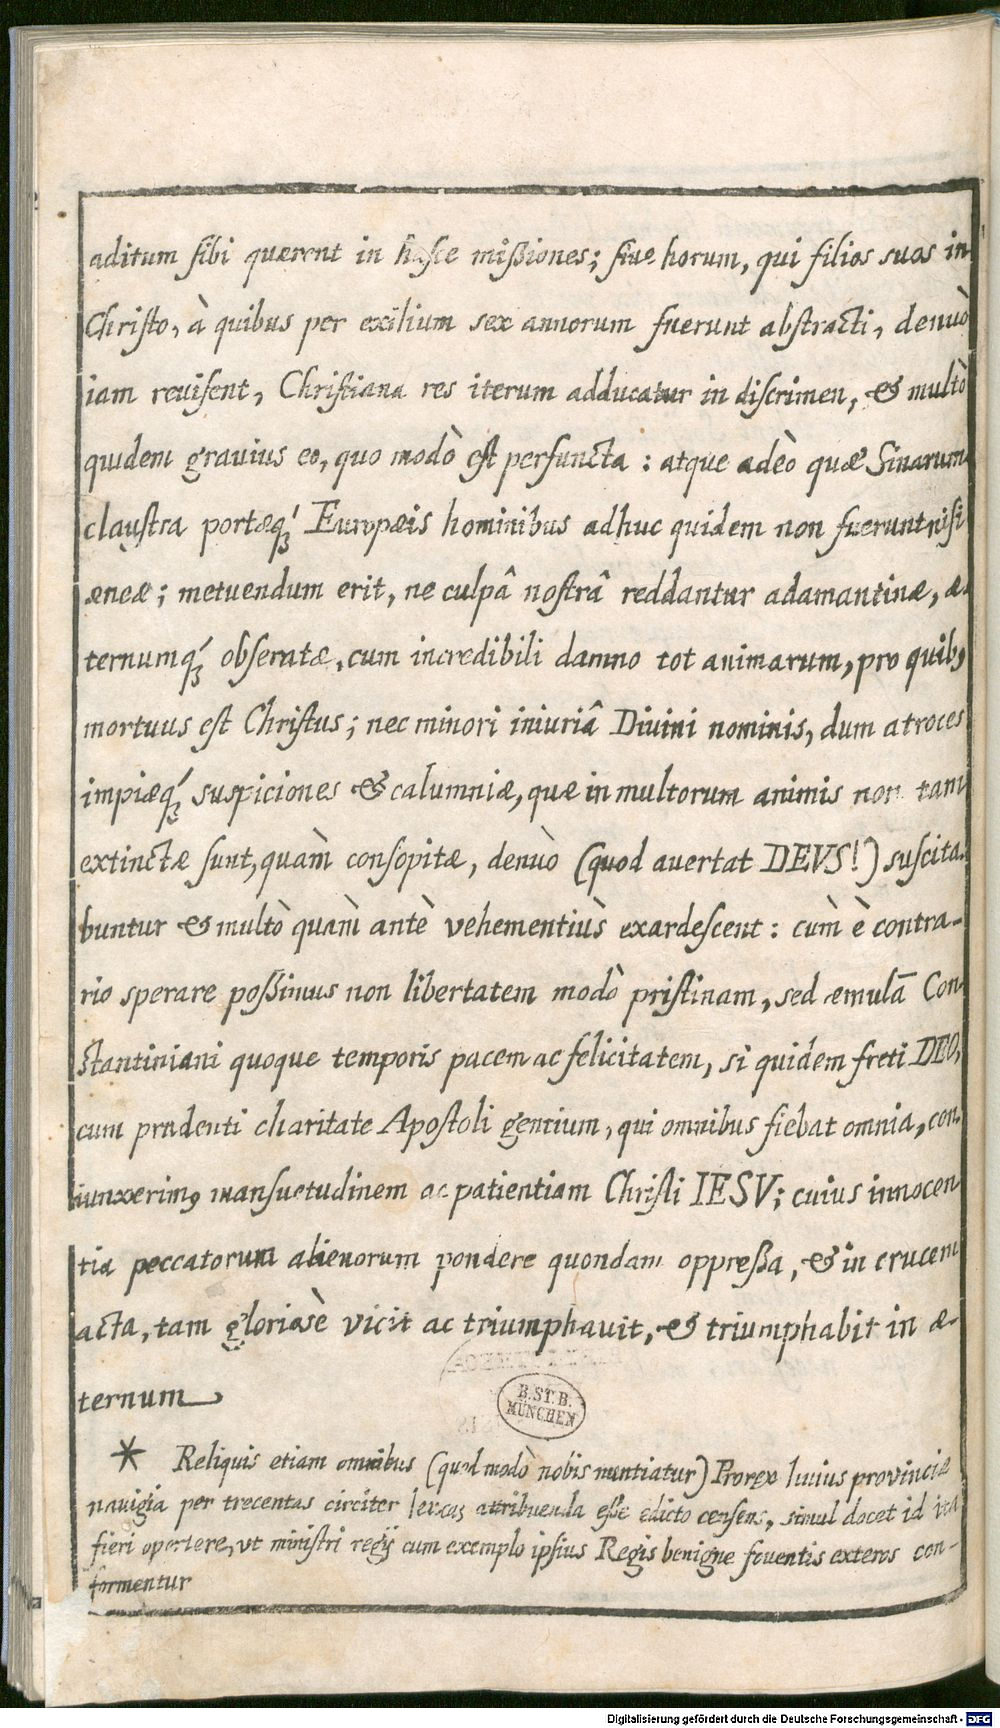 aditum ſibi quærent in haſce miſsiones; ſiue horum, qui filios suos in
Chriſto, à quibus per exilium sex annorum fuerunt abſtracti, denuò
iam reuiſent, Chriſtiana res iterum adducatur in diſcrimen, & multò
quidem grauius eo, quo modò eſt perfuncta : atque adeò quæ Sinarum
clauſtra portæq́; Europæis hominibus adhuc quidem non fuerunt niſi
æneæ ; metuendum erit, ne culpâ noſtrâ reddantur adamantinæ, æ-
ternumq́; obſeratæ, cum incredibili damno tot animarum, pro quib9
mortuus eſt Chriſtus ; nec minori iniuriâ Diuini nominis, dum atroces
impiæq́; suspiciones & calumniæ, quæ in multorum animis non tam
extinctæ ſunt, quàm conſopitæ, denuò (quod auertat DEVS!) suſcita-
buntur & multò quàm antè vehementiùs exardeſcent : cùm è contra-
rio sperare poſsimus non libertatem modò priſtinam, sed æmulā Con-
ſtantiniani quoque temporis pacem ac felicitatem, si quidem freti DEO,
cum prudenti charitate Apoſtoli gentium, qui omnibus fiebat omnia, con-
iunxerim9 manſuetudinem ac patientiam Chriſti IESV; cuius innocen
tia peccatorum alienorum pondere quondam oppreſsa, & in crucem
acta, tam glorioſè vicit ac triumphauit, & triumphabit in æ-
ternum
B.ST.B.
MÜNCHEN
* Reliquis etiam omnibus (quod modò nobis nuntiatur) Prorex huius prouinciæ
nauigia per trecentas circiter leucas attribuenda eſſe edicto cenſens, simul docet id ita
fieri oportere, vt miniſtri regij cum exemplo ipſius Regis benigne fouentis exteros con-
formentur
Digitalisierung gefördert durch die Deutsche Forschungsgemeinschaft - DFG